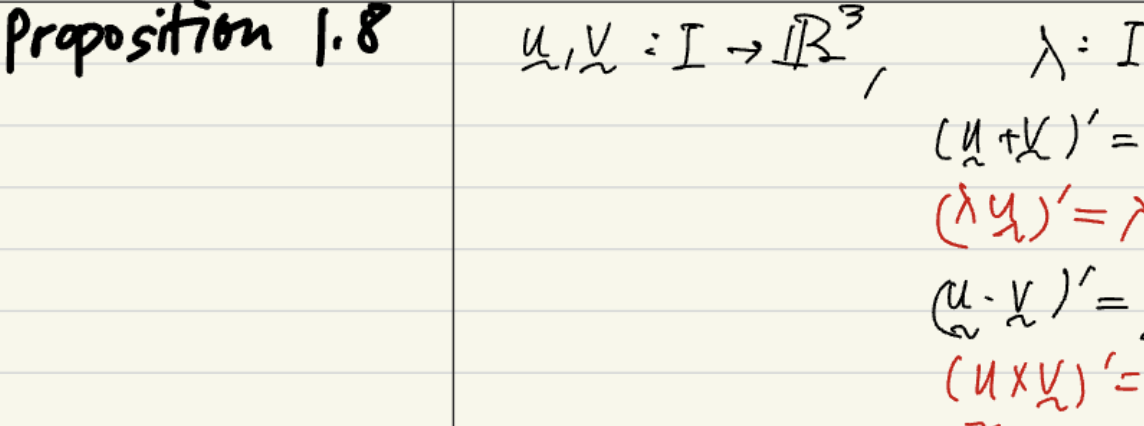 Proposition 1.8 u, v : I → ℝ³, λ : I
(u + v)' =
(λu)' = λ
(u · v)' =
(u × v)' =